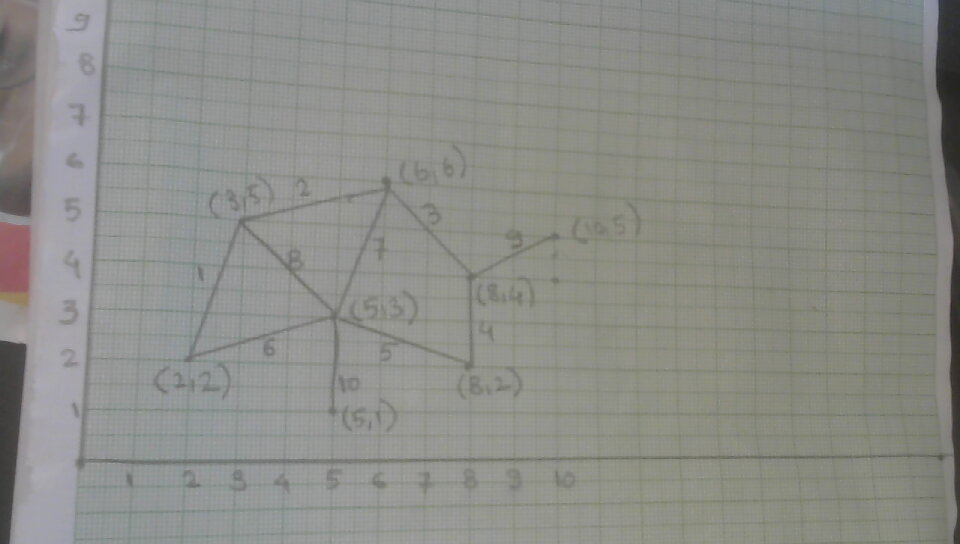 9
8
7
6
5
4
3
2
1
(3,5)
2
(6,6)
3
9
(10,5)
1
8
7
(5,3)
(8,4)
4
6
5
(2,2)
10
(8,2)
(5,1)
1 2 3 4 5 6 7 8 9 10